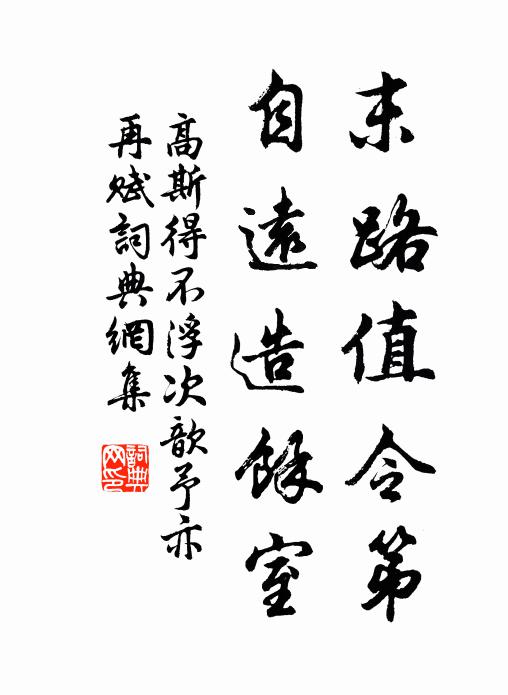 末路值令弟
自遠造餘室
高斯得不浮次歆予亦
再賦詞典網集
詞典網印